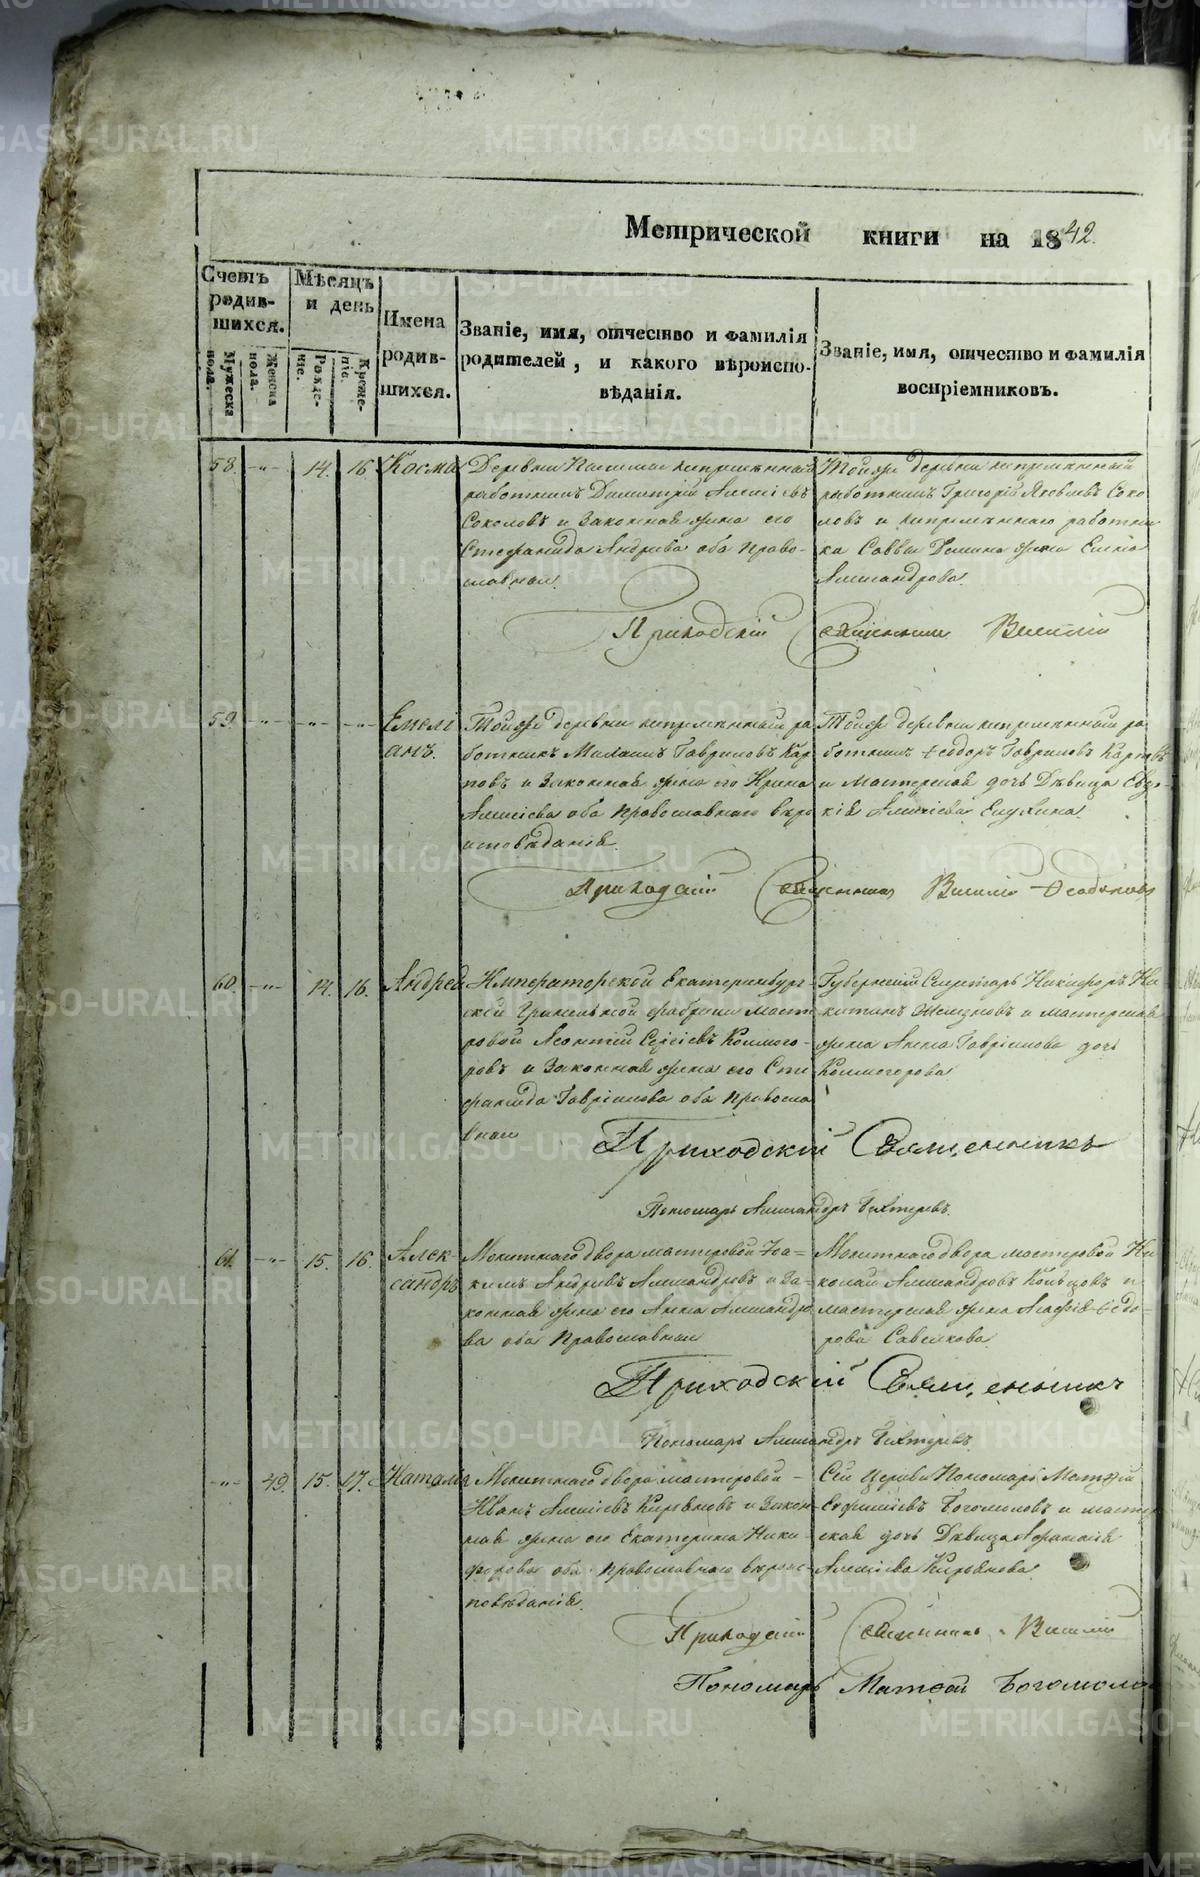 Метрической книги на 1842.
Счетъ родив-шихся.
Мужеска пола.
Женска пола.
Мѣсяцъ и день
Рожде-ніе.
Креще-ніе.
Имена родив-шихся.
Званіе, имя, отчество и фамилія
родителей, и какого вѣроиспо-
вѣданія.
Званіе, имя, отчество и фамилія
воспріемниковъ.
58. -"- 14. 16. Косма
Деревни непремѣнный
работникъ Димитрій Алексіевъ
Соколовъ и законная жена его
Стефанида Андреева оба право-
славные.
Тойже деревни непремѣнный
работникъ Григорій Яковлевъ Соко
ловъ и непремѣннаго работни
ка Саввы жена Елена
Александрова.
Приходскій Священникъ Василій
59. -"- -"- -"- Емелі
анъ.
Тойже деревни непремѣнный ра
ботникъ Гавриловъ Кар
повъ и законная жена его Ирина
Алексіева оба православнаго вѣро
исповѣданія.
Тойже деревни непремѣнный ра
ботникъ Ѳеодоръ Гавриловъ Карповъ
и мастерская дочь дѣвица Евдо-
кія Алексіева
Приходскій Священникъ Василій
60. -"- 14. 16. Андрей
Императорской Екатеринбург-
ской Гранильной фабрики масте
ровой Леонтій Сергіевъ Колмого-
ровъ и законная жена его Сте
фанида Гавріилова оба православ
ные
Губернскій Секретарь Никифоръ Ни
китинъ и мастерская
жена Анна Гавріилова дочь
Колмогорова
Приходскій Священникъ
Пономарь Александръ
61. -"- 15. 16. Алек-
сандръ
Монетнаго двора мастеровой Іоа-
кимъ Андреевъ Александровъ и за-
конная жена его Анна Александро
ва оба православные
Монетнаго двора мастеровой Ни
колай Александровъ и
мастерская жена Агафія Ѳедо-
рова Савелкова
Приходскій Священникъ
Пономарь Александръ
-"- 49. 15. 17. Наталія
Монетнаго двора мастеровой -
Иванъ Алексіевъ и закон-
ная жена его Екатерина Ники
форова оба православнаго вѣроис-
повѣданія.
Сей Церкви Пономарь Матѳей
Богомоловъ и мастер
ская дочь дѣвица
Алексіева
Приходскій Священникъ Василій
Пономарь Матѳей Богомолов
METRIKI.GASO-URAL.RU